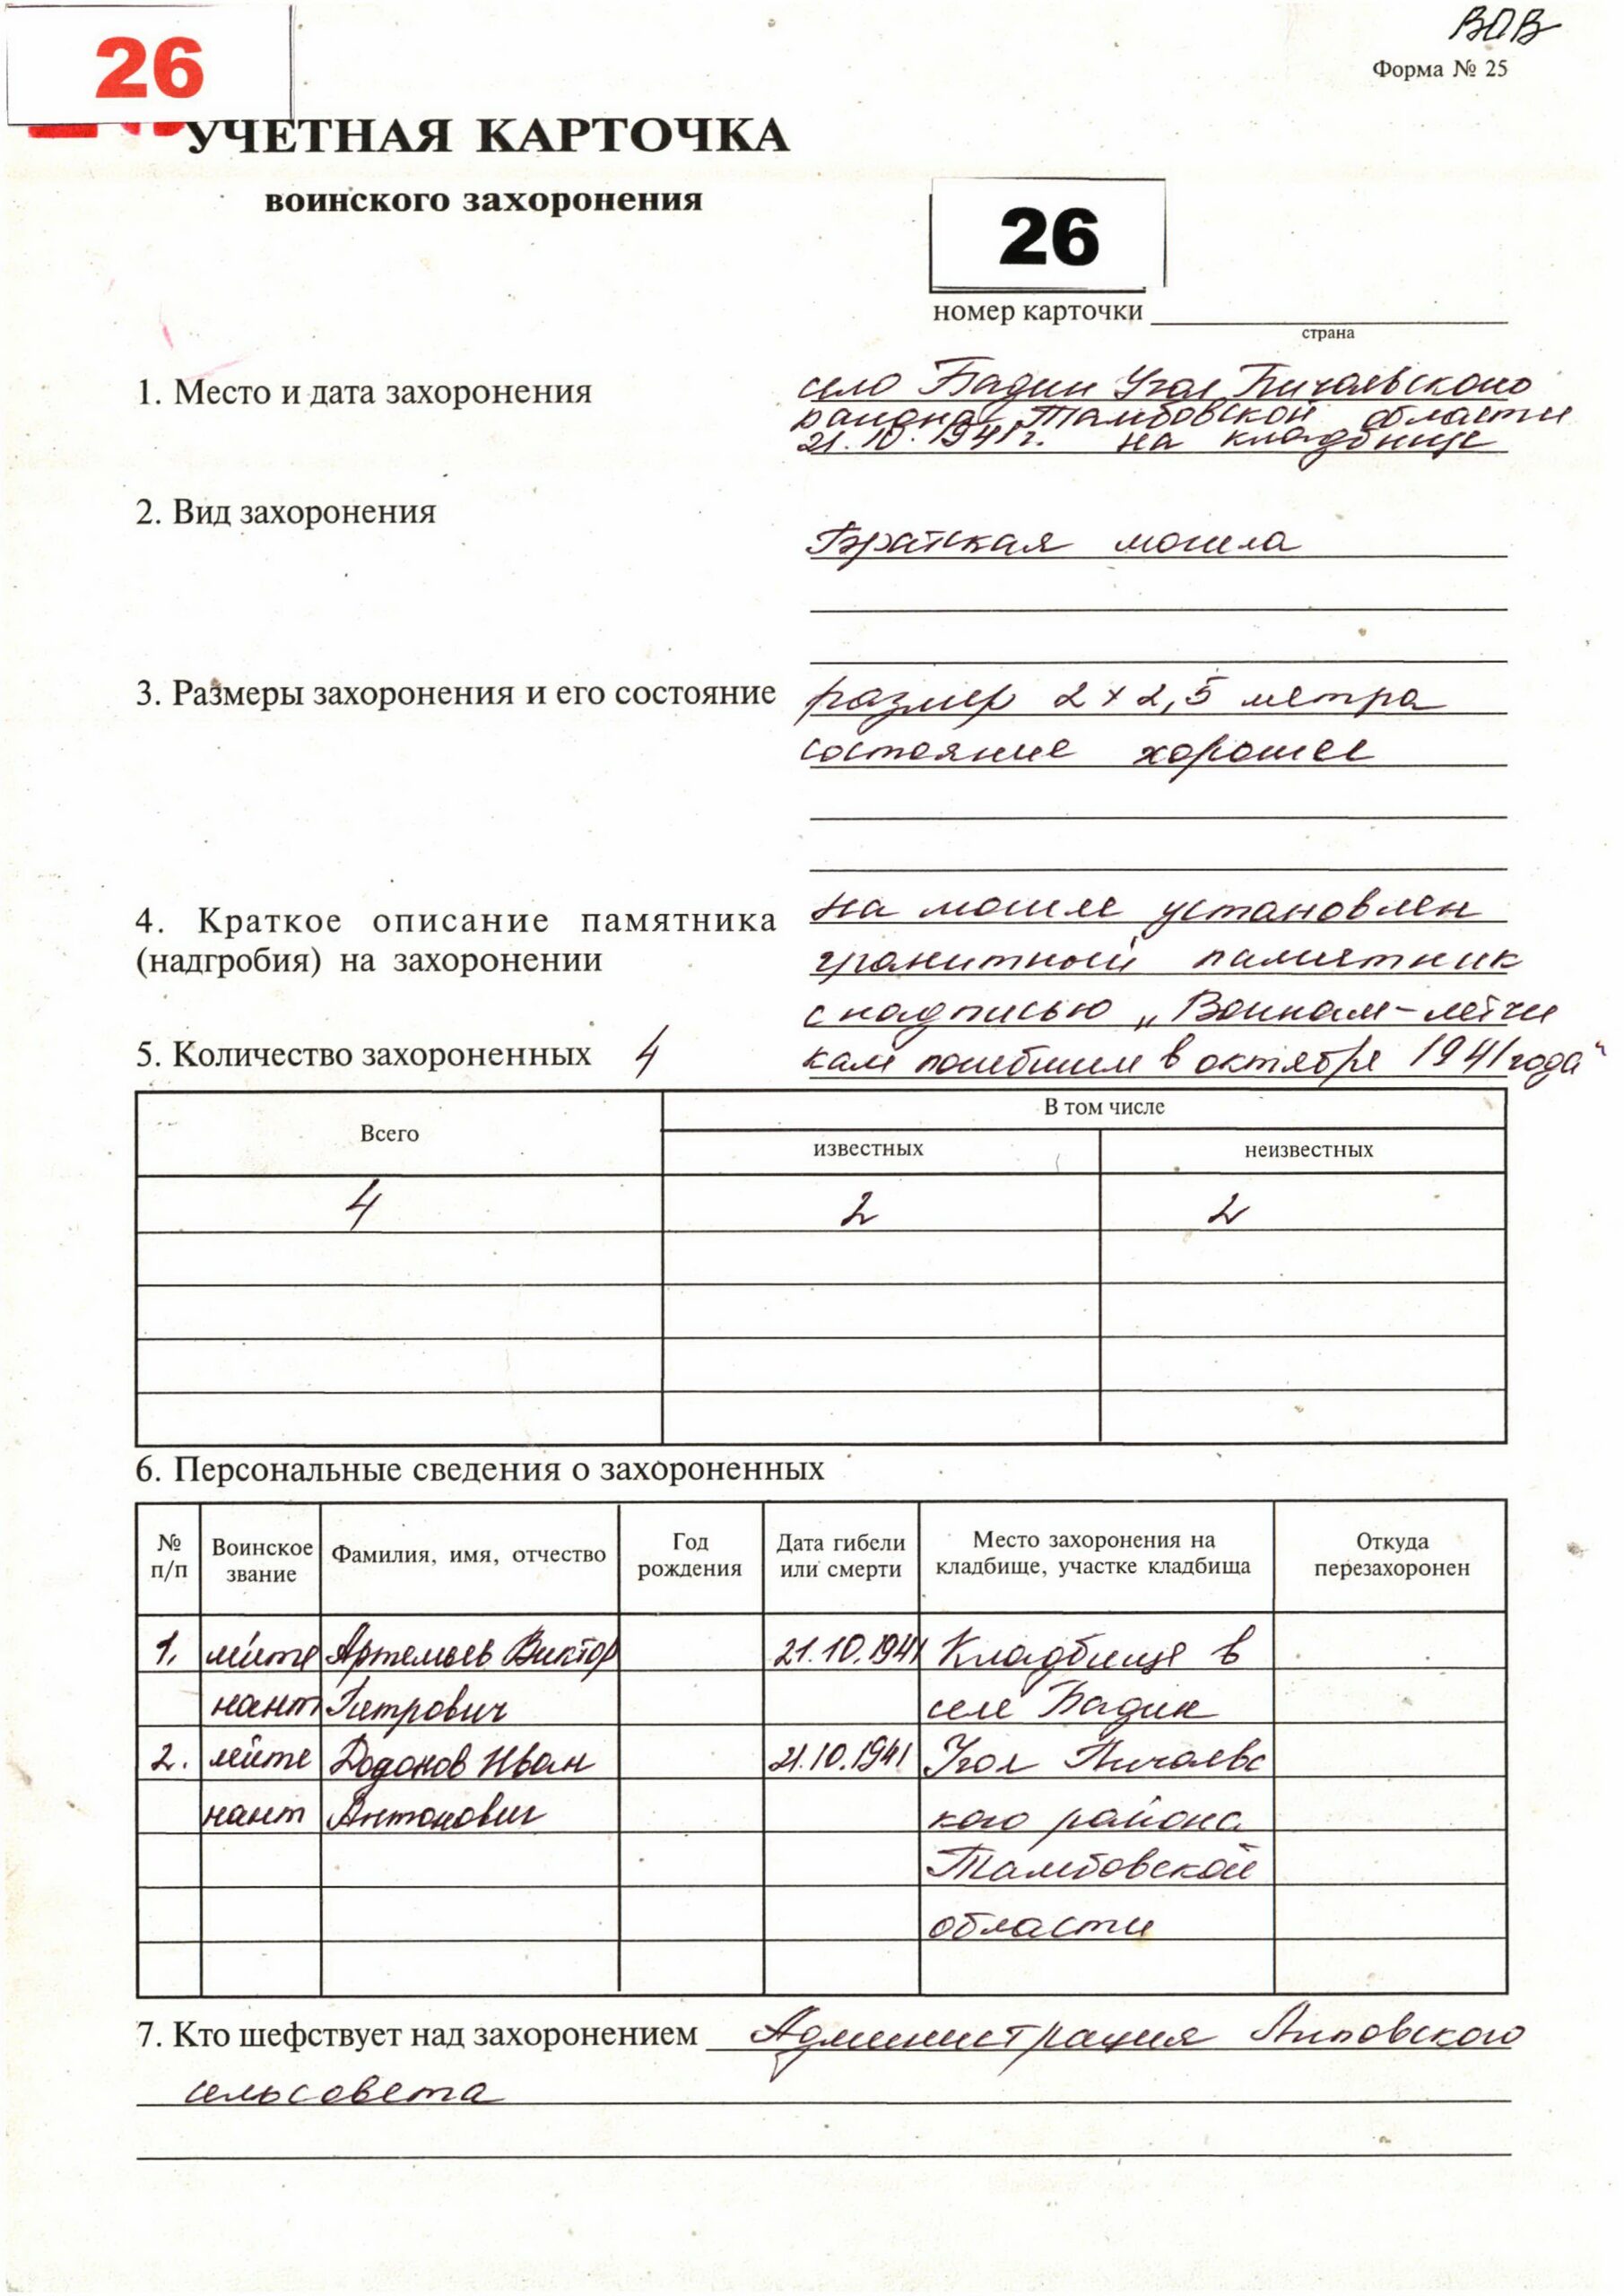 ВОВ
Форма № 25
26
УЧЕТНАЯ КАРТОЧКА
воинского захоронения
26
номер карточки
страна
1. Место и дата захоронения
село Бадин Угол Пичаевского
района Тамбовской области
21.10.1941г. на кладбище
2. Вид захоронения
Братская могила
3. Размеры захоронения и его состояние
размер 2 х 2,5 метра
состояние хорошее
4. Краткое описание памятника
(надгробия) на захоронении
на могиле установлен
гранитный памятник
с надписью „Воинам-летчи
кам погибшим в октябре 1941 года"
5. Количество захороненных 4
Всего
В том числе
известных
неизвестных
4 2 2
6. Персональные сведения о захороненных
№ п/п
Воинское звание
Фамилия, имя, отчество
Год рождения
Дата гибели или смерти
Место захоронения на кладбище, участке кладбища
Откуда перезахоронен
1. лейте Артемьев Виктор 21.10.1941 Кладбище в
нант Петрович селе Бадин
2. лейте Додонов Иван 21.10.1941 Угол Пичаевс
нант Антонович кого района
Тамбовской
области
7. Кто шефствует над захоронением Администрация Липовского
сельсовета